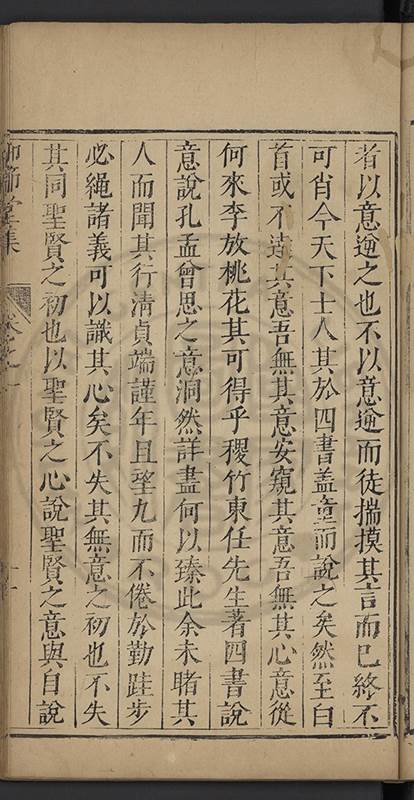 者以意逆之也不以意逆而徒揣摸其言而已終不
可肖今天下士人其於四書盖童而說之矣然至白
首或不達其意吾無其意安窺其意吾無其心意從
何來李放桃花其可得乎稷竹東任先生著四書說
意說孔孟曾思之意洞然詳盡何以臻此余未睹其
人而聞其行清貞端謹年且望九而不倦於勤跬步
必繩諸義可以識其心矣不失其無意之初也不失
其同聖賢之初也以聖賢之心說聖賢之意與自說
堂集